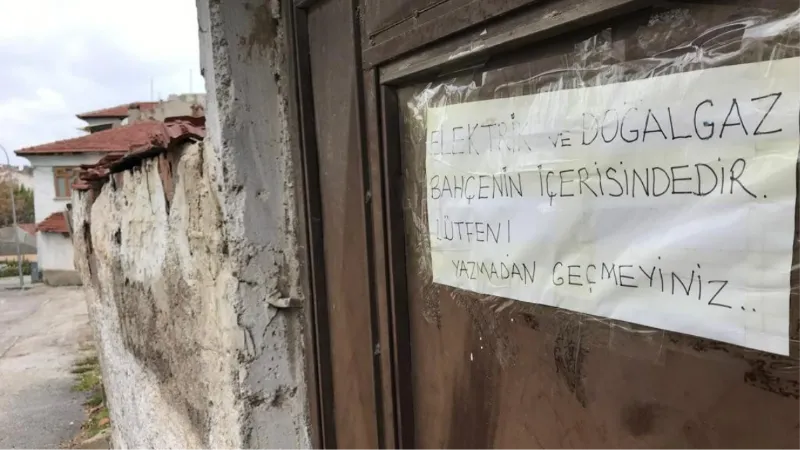 ELEKTRİK VE DOĞALGAZ
BAHÇENİN İÇERİSİNDEDİR.
LÜTFEN!
YAZMADAN GEÇMEYİNİZ..